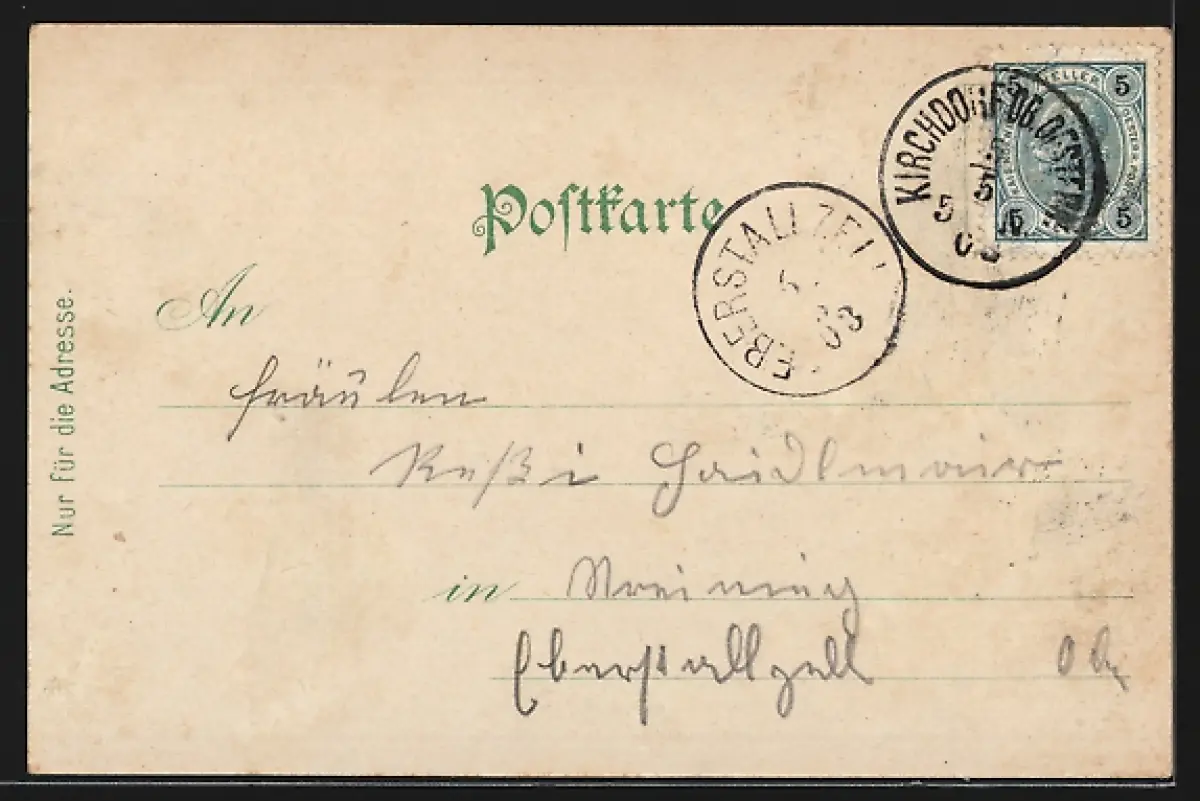 5 HELLER 5
KIRCHDORF OB. OESTERR.
5 03
5 5
Postkarte
EBERSTALLZELL
03
An
Nur für die Adresse.
Fräulen
Reßi Haidlmair
in
Eberstallzell